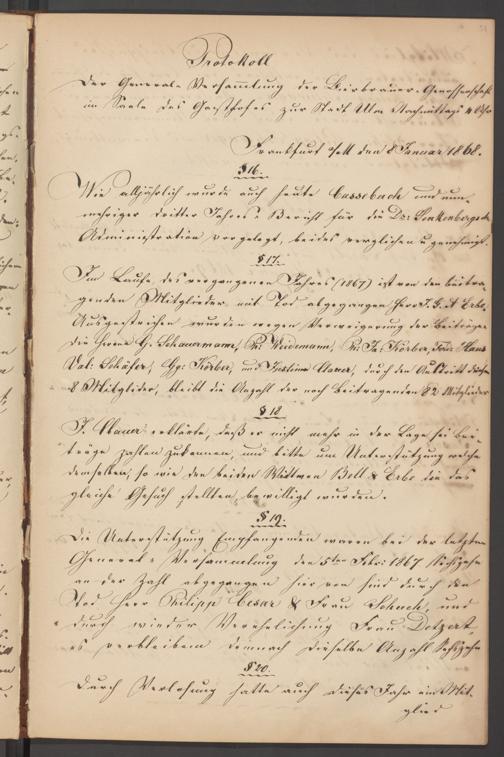 Protokoll
Der General-Versammlung der Bierbrauer-Genossenschaft
im Saale des Gasthofes zur Stadt Ulm Nachmittags 4 Uhr
Frankfurt a/M den 8 Januar 1868.
§ 16.
Wie alljährlich wurde auch heute Cassebuch und nun-
mehriger dritter Jahres Bericht für die Dr: Senkenbergische
Administration vorgelegt, beides verglichen u genehmigt.
§ 17.
Im Laufe des vergangenen Jahres (1867) ist von den beitra-
genden Mitglieder mit Tod abgegangen Herr J. G. A Erbe.
Ausgestrichen wurden wegen Verweigerung der Beiträge
die Herrn G. Schauermann, Weidemann, Körber, Hans
Val: Schäfer, Körber, und Mauer, durch den Austritt dieser
8 Mitglieder, bleibt die Anzahl der noch Beitragenden 82 Mitglieder
§ 18
J. Mauer erklärte, daß er nicht mehr in der Lage sei bei-
träge zahlen zu können, und bitte um Unterstützung welche
demselben, so wie den beiden Wittwen Bolt & Erbe die das
gleiche Gesuch stellten, bewilligt wurden.
§ 19.
Die Unterstützung Empfangenden waren bei der letzten
General-Versammlung den 5ten Febr 1867 Sechzehn
an der Zahl abgegangen hiervon sind durch den
Tod Herr Philipp Cesar & Frau Schuch, und
durch wieder Verehelichung Frau Dotzert
es verbleiben demnach dieselbe Anzahl Sechzehn
§ 20.
Durch Verlosung hatte auch dieses Jahr ein Mit-
glied